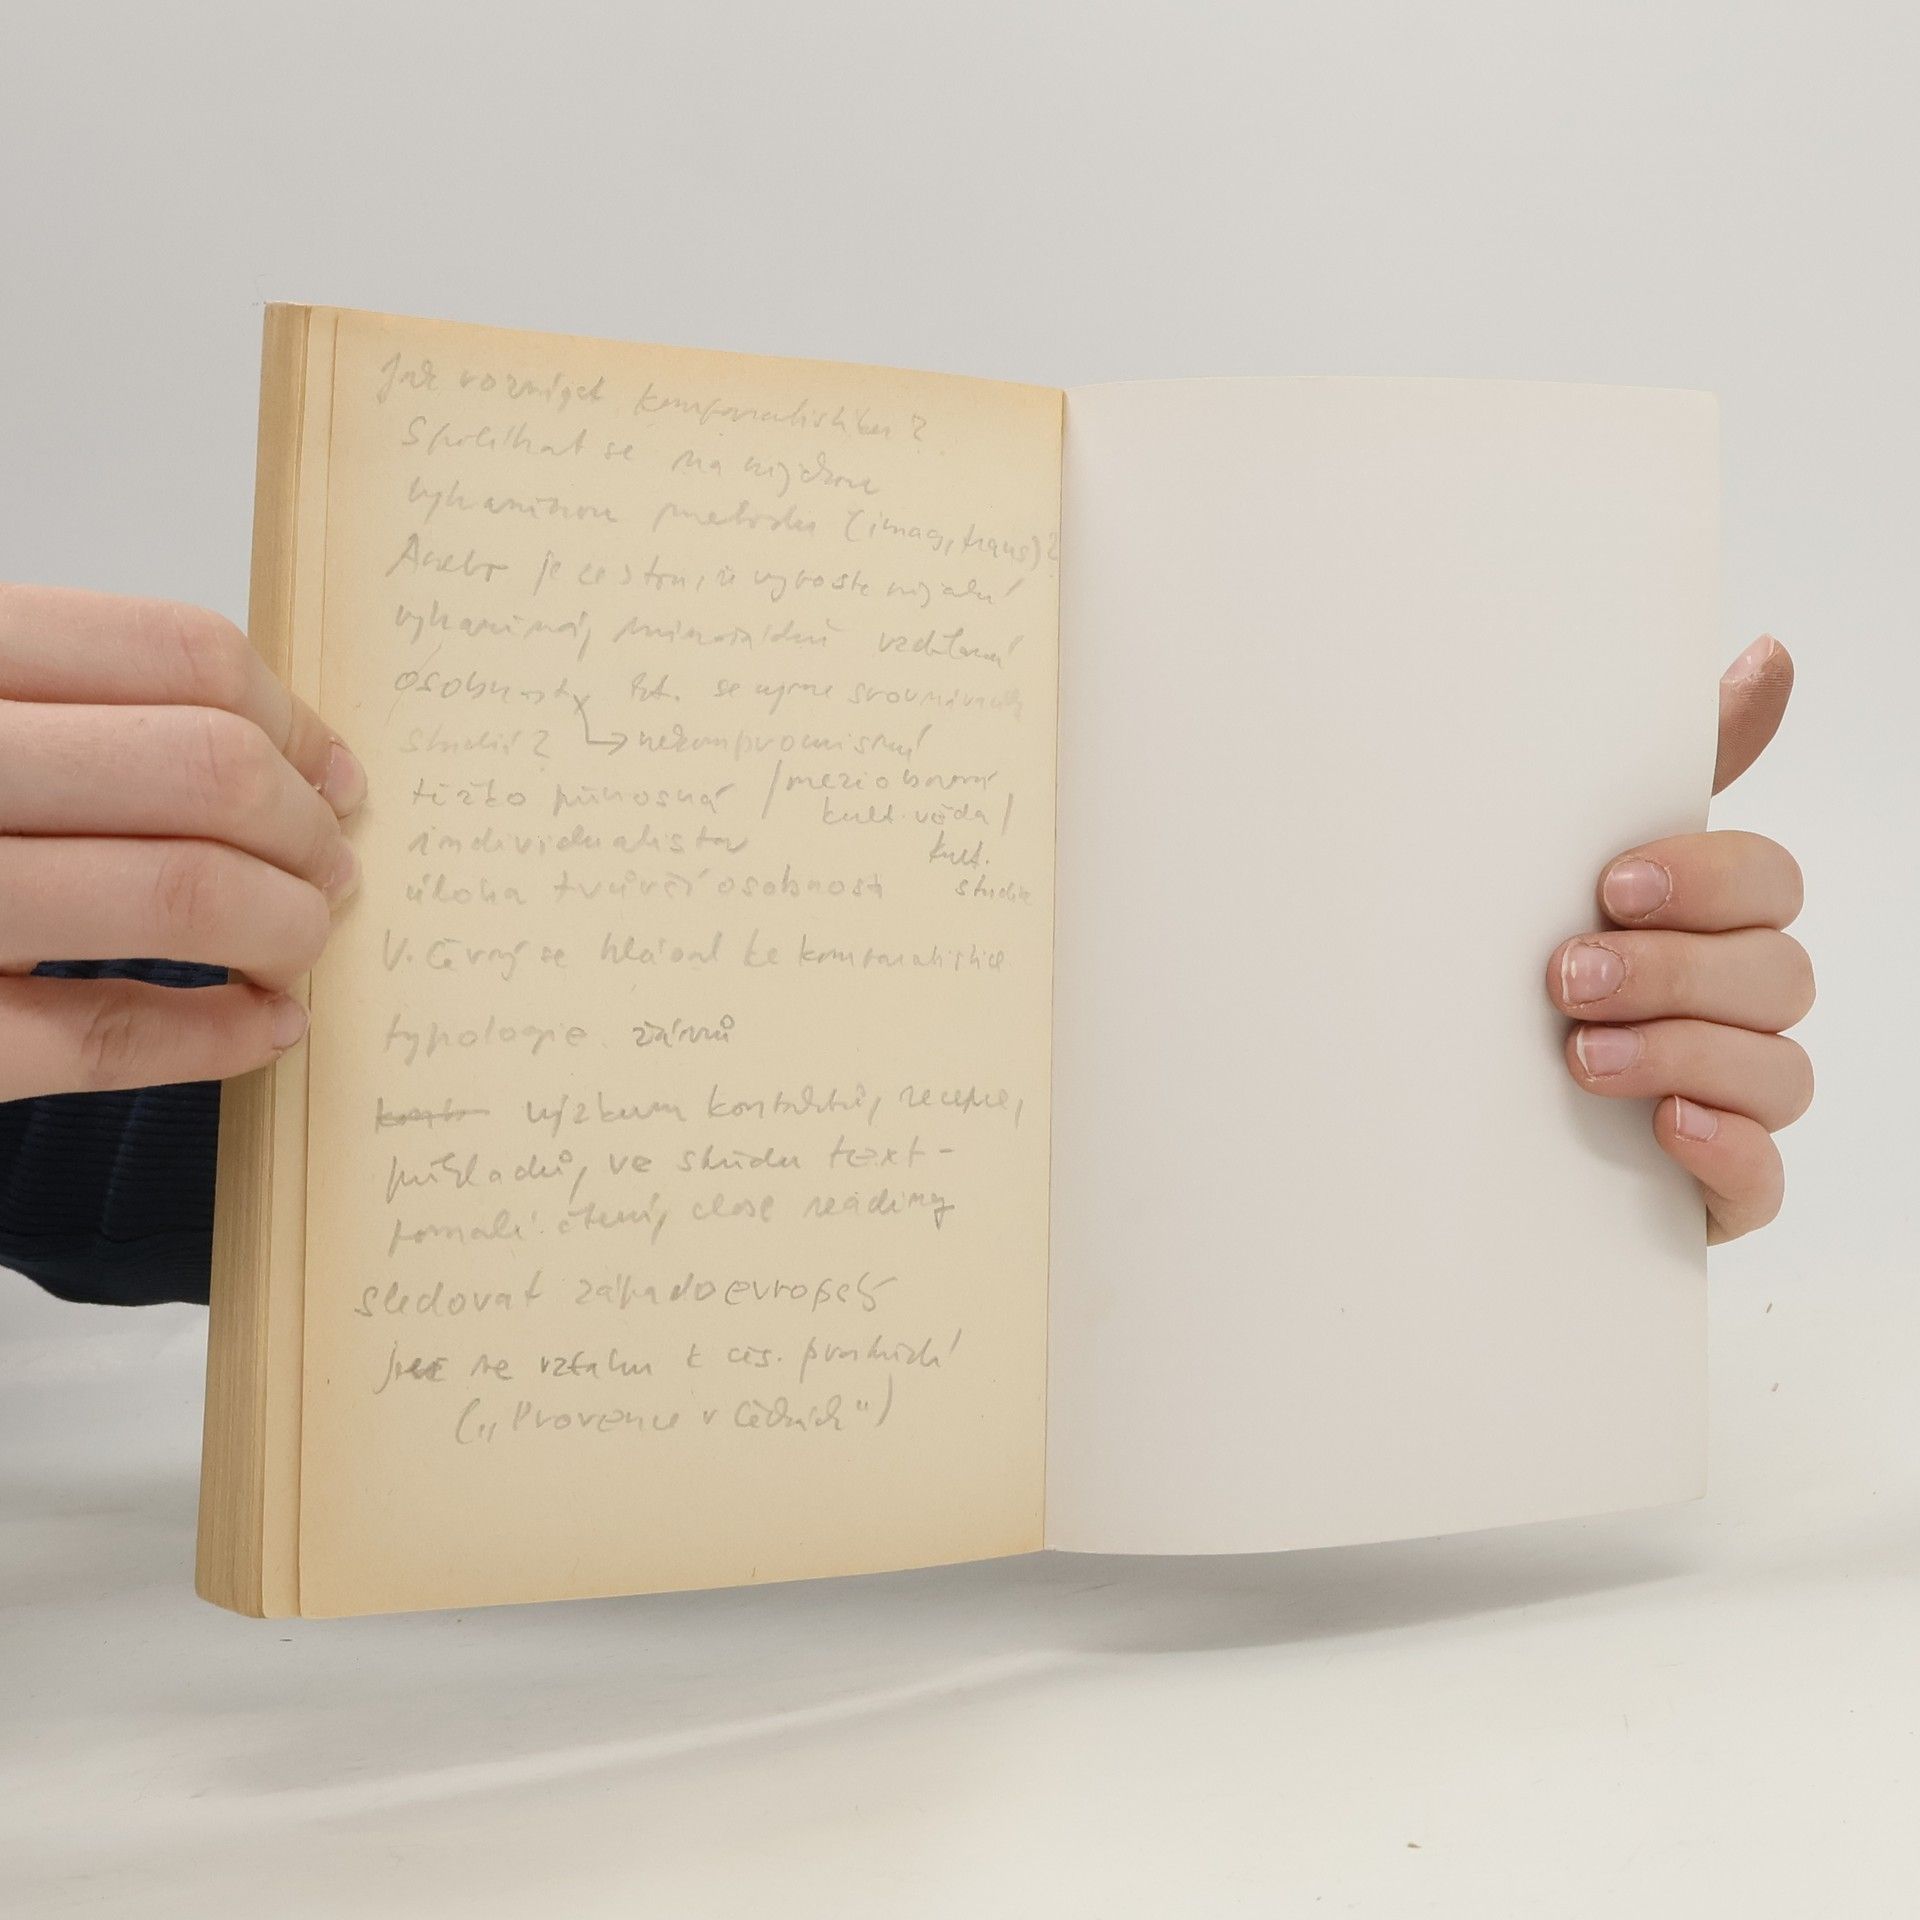 Jak rozvíjet komparatistiku?
Spoléhat se na nějakou
vyhraněnou metodu (imag, trans)?
Anebo je cestou, že vyroste nějaká
vyhraněná, mimořádně vzdělaná
osobnost, kt. se ujme srovnávacích
studií? → nekompromisní
těžko přínosná /mezioborová
kult. věda/
individualista kult.
úloha tvůrčí osobnosti studia
V. Černý se hlásal ke komparatistice
typologie žánrů
výzkum kontaktů, recepce,
překladů, ve středu text -
pomalé čtení, close reading
sledovat západoevropský
ve vztahu k čes. prostředí
(„Provence v Čechách“)